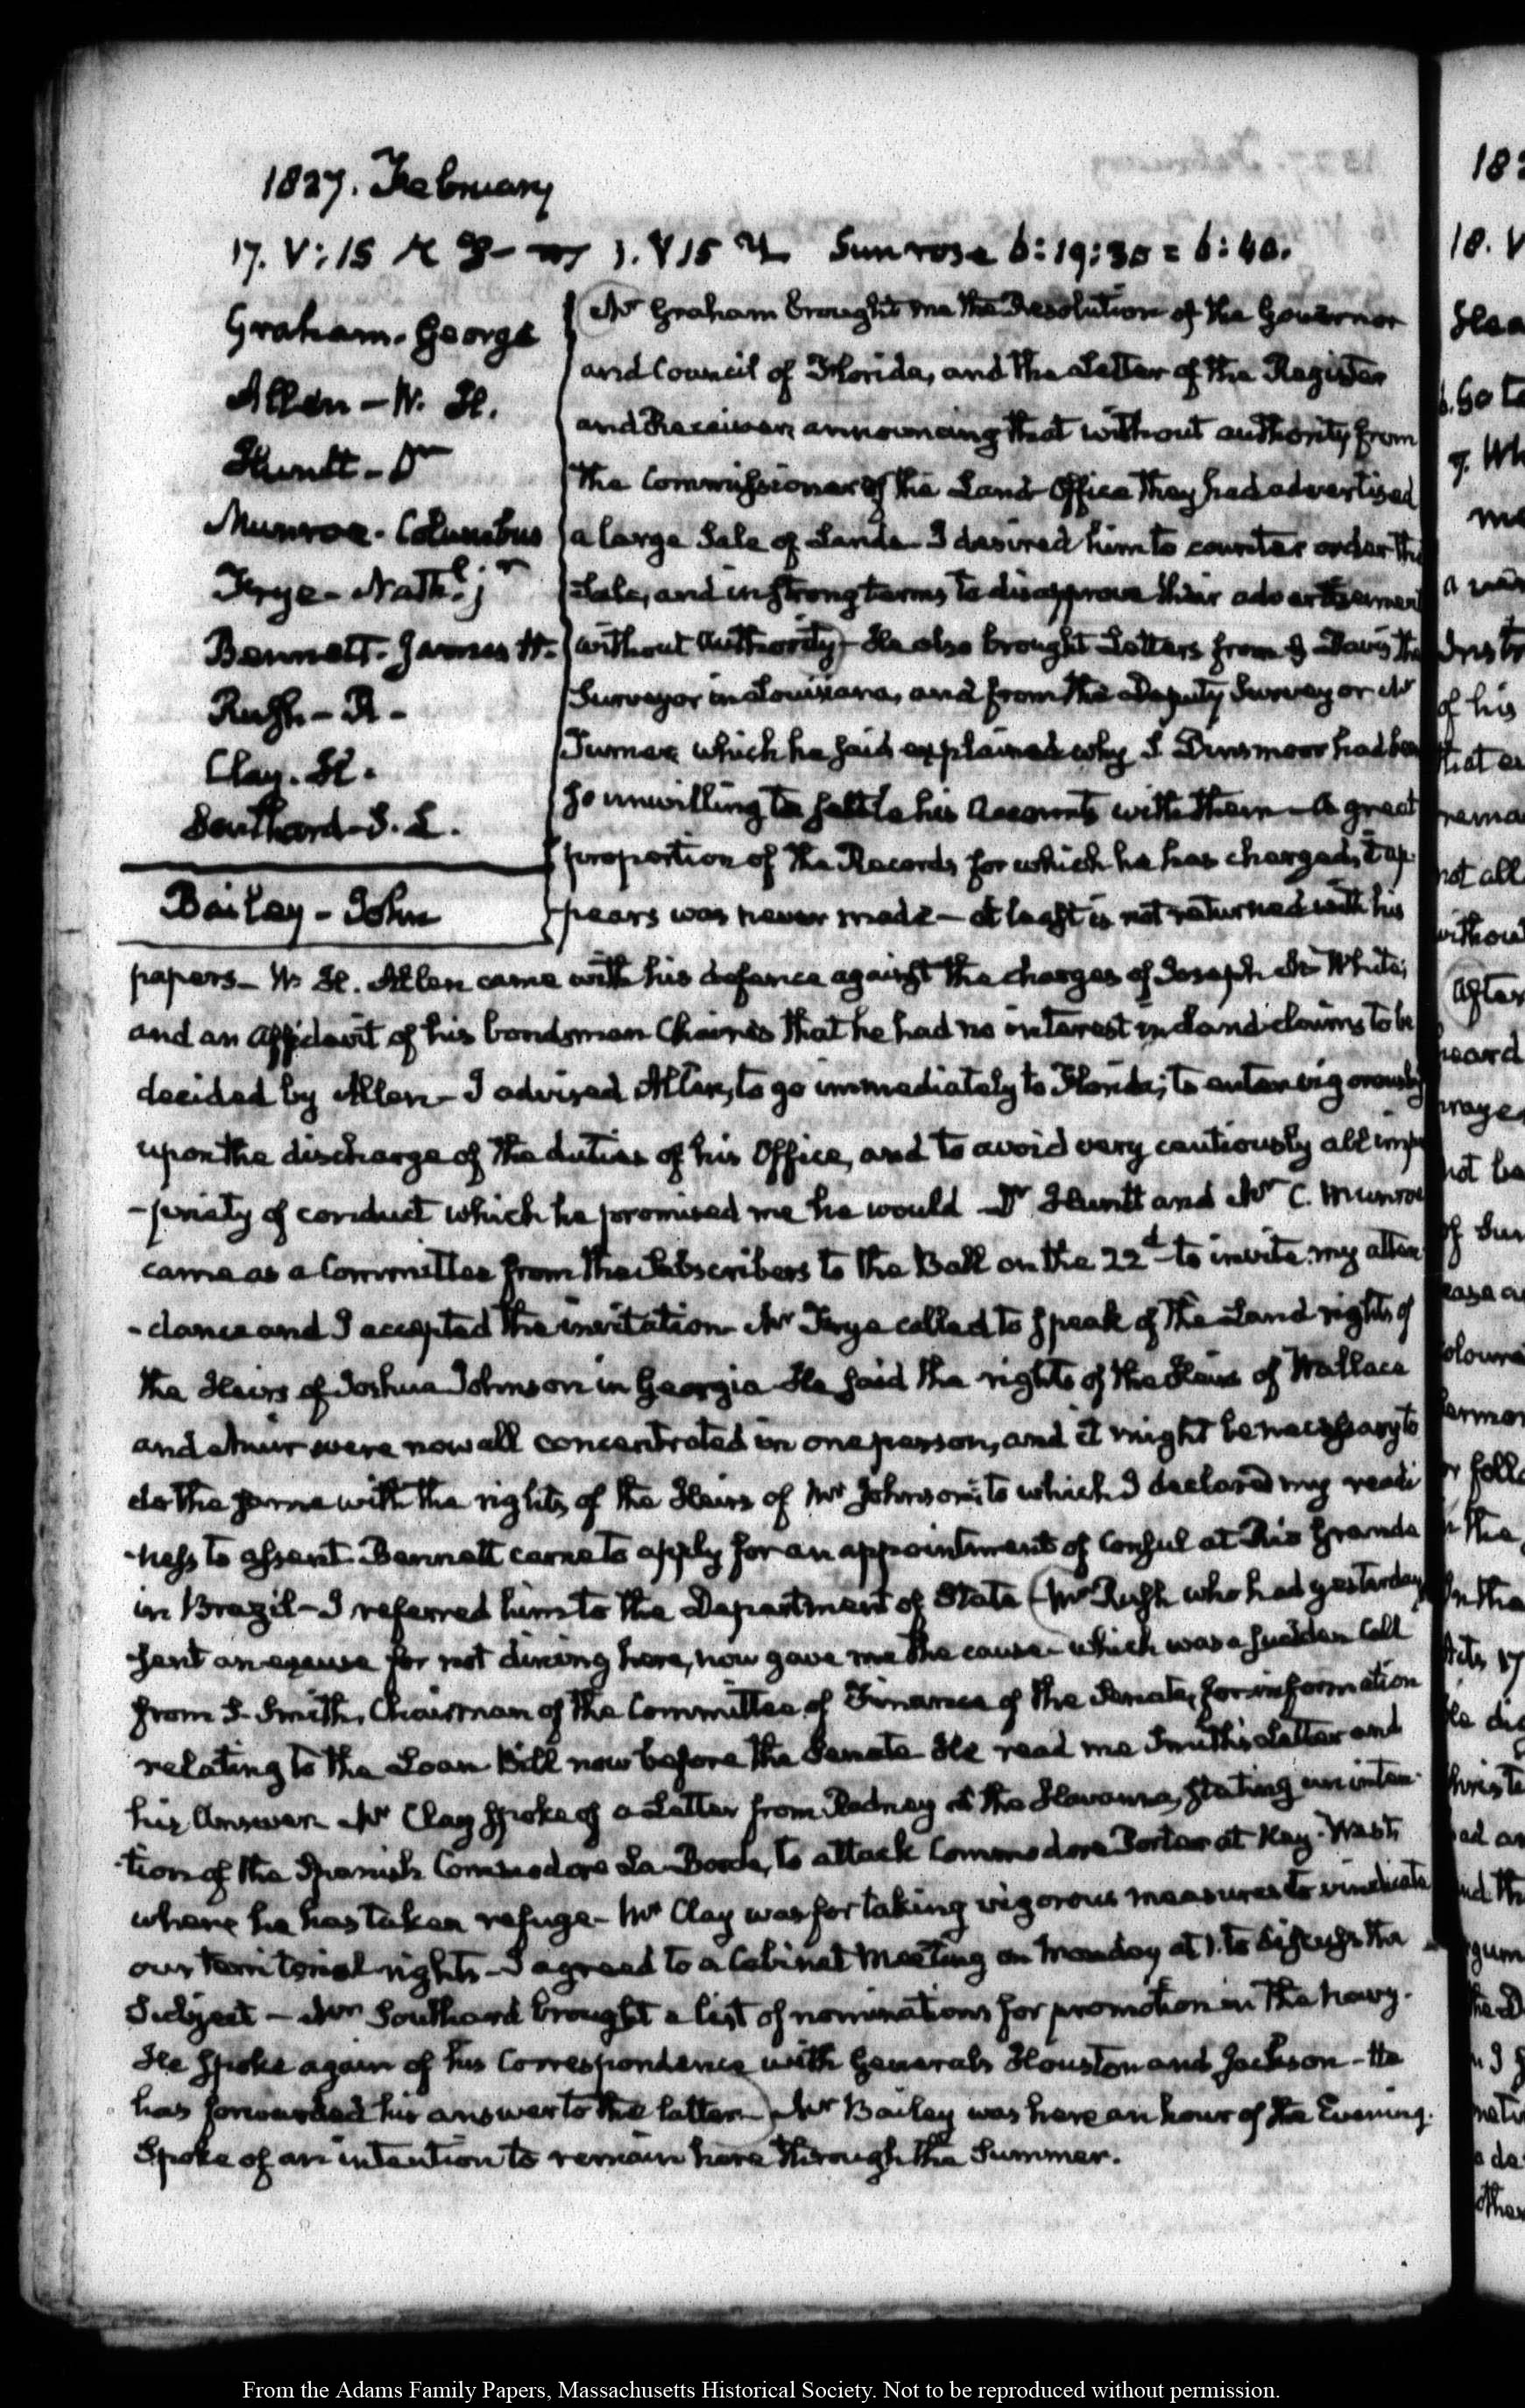 1827. February
17. V:15 Sun rose 6:19:30 = 6:40.
Graham. George
Allen - W. H.
Huntt - Dr
Munroe - Columbus
Frye - Nathl. jr
Bennett - James H.
Rush - R -
Clay. H.
Southard - S. L.
Bailey - John
Mr Graham brought me the Resolution of the Governor
and Council of Florida, and the Letter of the Register
and Receiver announcing that without authority from
the Commissioner of the Land Office they had advertised
a large Sale of Lands - I desired him to counter order the
Sale, and in strong terms to disapprove their advertisement
without authority - He also brought Letters from Davis the
Surveyor in Louisiana, and from the Deputy Surveyor Mr
Turner which he said explained why S. Dinsmoor had been
so unwilling to settle his Accounts with them - A great
proportion of the Records for which he has charged, it ap-
pears was never made - at least is not returned with his
papers - W. H. Allen came with his defence against the charges of Joseph M. White;
and an affidavit of his bondsman Chaires that he had no interest in land claims to be
decided by Allen - I advised Allen, to go immediately to Florida; to enter vigorously
upon the discharge of the duties of his Office, and to avoid very cautiously all impro
-priety of conduct which he promised me he would - Dr Huntt and Mr C. Munroe
came as a Committee from the Subscribers to the Ball on the 22d to invite my atten
-dance and I accepted the invitation - Mr Frye called to speak of the Land rights of
the Heirs of Joshua Johnson in Georgia - He said the rights of the Heirs of Wallace
and Muir were now all concentrated in one person, and it might be necessary to
do the same with the rights of the Heirs of Mr Johnson; to which I declared my readi
-ness to assent. Bennett came to apply for an appointment of Consul at Rio Grande
in Brazil - I referred him to the Department of State (Mr Rush who had yesterday
sent an excuse for not dining here, now gave me the cause - which was a sudden call
from S. Smith, Chairman of the Committee of Finance of the Senate, for information
relating to the Loan Bill now before the Senate - He read me Smith's Letter and
his Answer. Mr Clay spoke of a Letter from Rodney at the Havanna, stating an inten-
-tion of the Spanish Commodore La Borde, to attack Commodore Porter at Key-West
where he has taken refuge - Mr Clay was for taking vigorous measures to vindicate
our territorial rights - I agreed to a Cabinet Meeting on Monday at 1. to discuss the
Subject - Mr Southard brought a list of nominations for promotion in the Navy.
He spoke again of his Correspondence with Generals Houston and Jackson - He
has forwarded his answer to the latter -) Mr Bailey was here an hour of the Evening.
Spoke of an intention to remain here through the Summer.
From the Adams Family Papers, Massachusetts Historical Society. Not to be reproduced without permission.